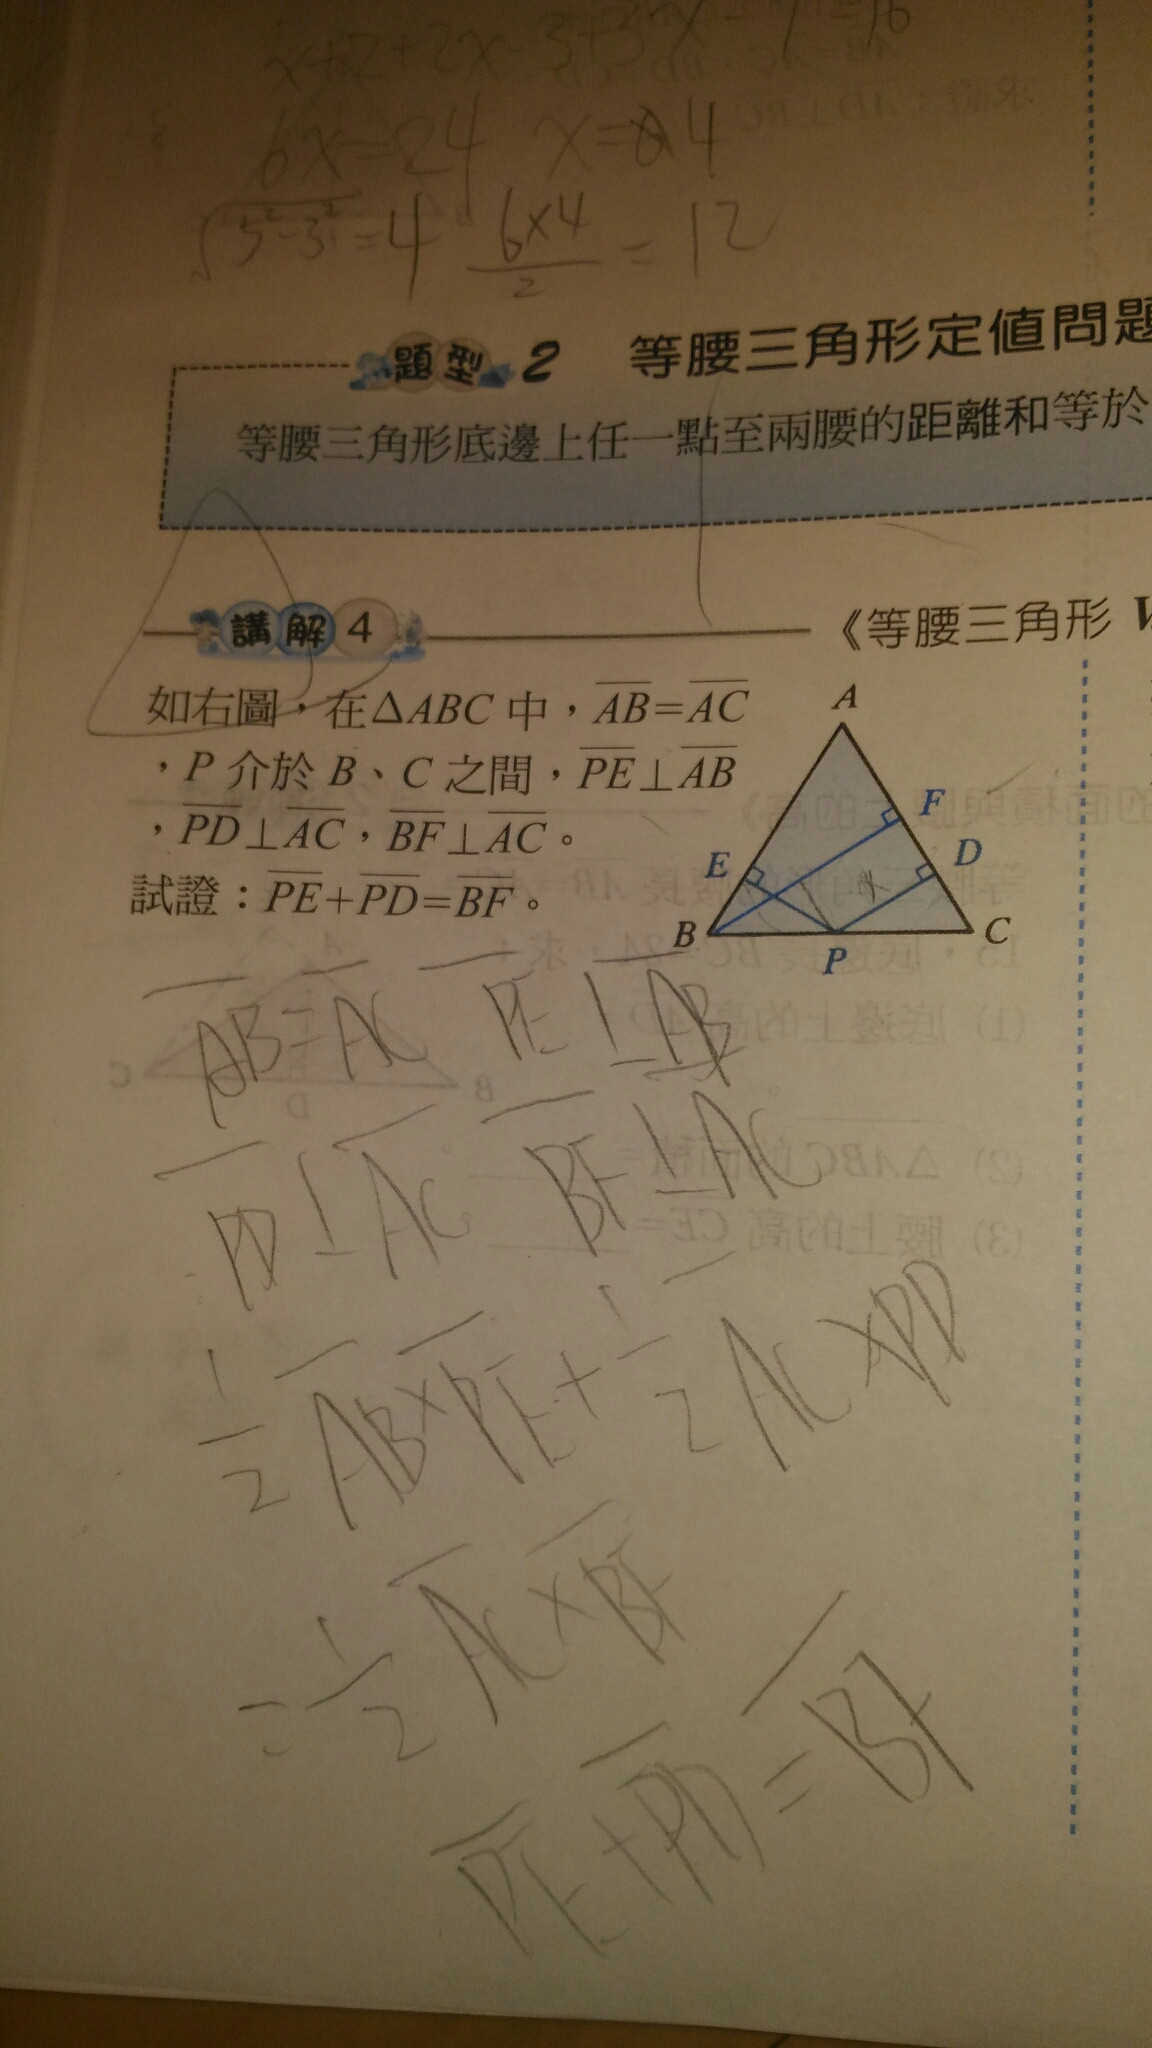 6x=24 x=4
√5²-3²=4 6×4/2=12
題型2 等腰三角形定值問題
等腰三角形底邊上任一點至兩腰的距離和等於
講解4
《等腰三角形
如右圖，在ΔABC中，AB=AC
，P介於B、C之間，PE⊥AB
，PD⊥AC，BF⊥AC。
試證：PE+PD=BF。
A
F
D
E
B
C
P
AB=AC PE⊥AB
PD⊥AC BF⊥AC
1/2 AB×PE+1/2 AC×PD
=1/2 AC×BF
PE+PD=BF